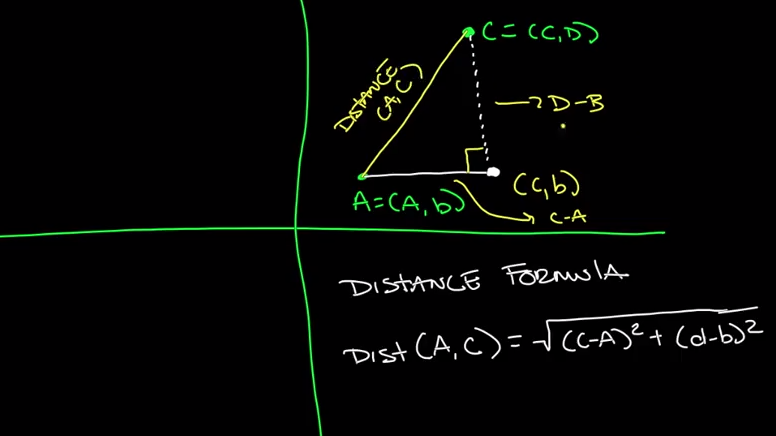 C = (C,D)
DISTANCE
(A,C)
→ D-B
(C,b)
A=(A,b)
C-A
DISTANCE FORMULA
DIST (A,C) = √(C-A)² + (d-b)²